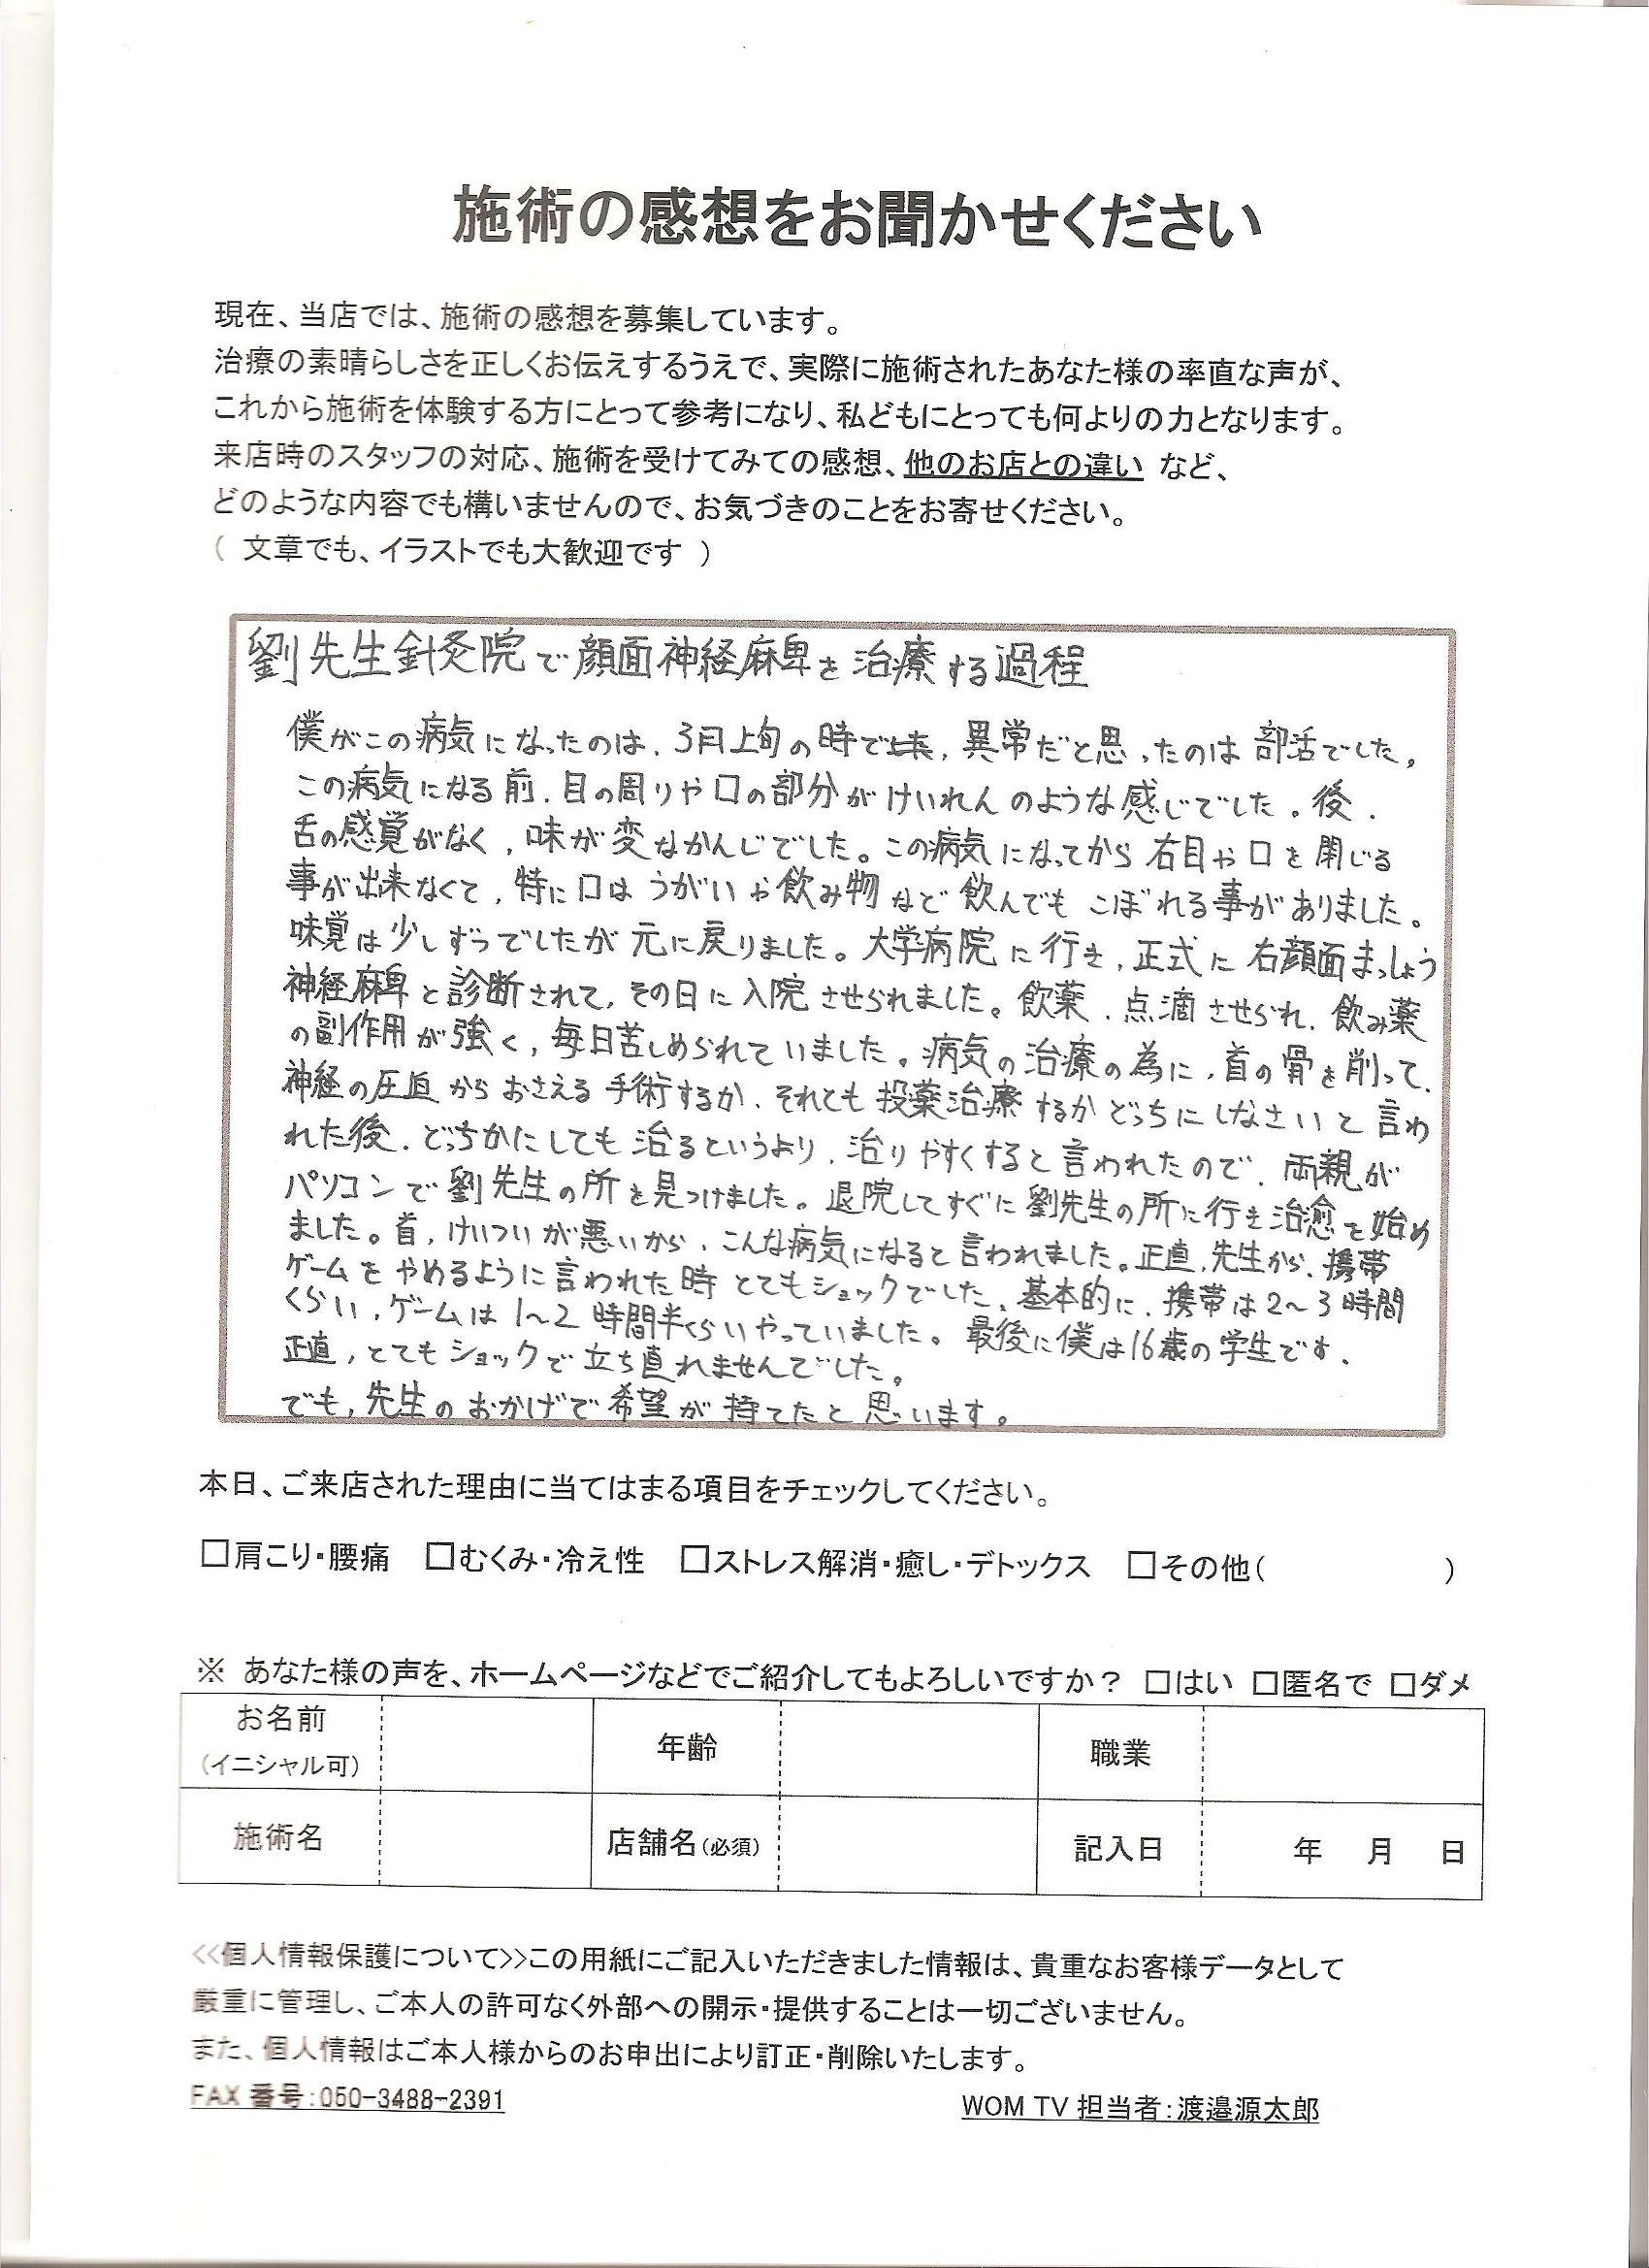 施術の感想をお聞かせください
現在、当店では、施術の感想を募集しています。
治療の素晴らしさを正しくお伝えするうえで、実際に施術されたあなた様の率直な声が、
これから施術を体験する方にとって参考になり、私どもにとっても何よりの力となります。
来店時のスタッフの対応、施術を受けてみての感想、他のお店との違い など、
どのような内容でも構いませんので、お気づきのことをお寄せください。
( 文章でも、イラストでも大歓迎です )
劉先生針灸院で顔面神経麻痺を治療する過程
僕がこの病気になったのは、3月上旬の時で、異常だと思ったのは部活でした。
この病気になる前、目の周りや口の部分がけいれんのような感じでした。後、
舌の感覚がなく、味が変なかんじでした。この病気になってから右目や口を閉じる
事が出来なくて、特に口はうがいや飲み物など飲んでもこぼれる事がありました。
味覚は少しずつでしたが元に戻りました。大学病院に行き、正式に右顔面まっしょう
神経麻痺と診断されて、その日に入院させられました。飲薬、点滴させられ、飲み薬
の副作用が強く、毎日苦しめられていました。病気の治療の為に、首の骨を削って、
神経の圧迫からおさえる手術するか、それとも投薬治療するかどっちにしなさいと言わ
れた後、どっちかにしても治るというより、治りやすくすると言われたので、両親が
パソコンで劉先生の所を見つけました。退院してすぐに劉先生の所に行き治愈を始め
ました。首、けいついが悪いから、こんな病気になると言われました。正直、先生から、携帯
ゲームをやめるように言われた時とてもショックでした。基本的に、携帯は2～3時間
くらい、ゲームは1～2時間半くらいやっていました。最後に僕は16歳の学生です、
正直、とてもショックで立ち直れませんでした。
でも、先生のおかげで希望が持てたと思います。
本日、ご来店された理由に当てはまる項目をチェックしてください。
□肩こり・腰痛 □むくみ・冷え性 □ストレス解消・癒し・デトックス □その他( )
※ あなた様の声を、ホームページなどでご紹介してもよろしいですか？ □はい □匿名で □ダメ
お名前
(イニシャル可) 年齢 職業
施術名 店舗名(必須) 記入日 年 月 日
<<個人情報保護について>>この用紙にご記入いただきました情報は、貴重なお客様データとして
厳重に管理し、ご本人の許可なく外部への開示・提供することは一切ございません。
また、個人情報はご本人様からのお申出により訂正・削除いたします。
FAX 番号:050-3488-2391 WOM TV 担当者:渡邉源太郎